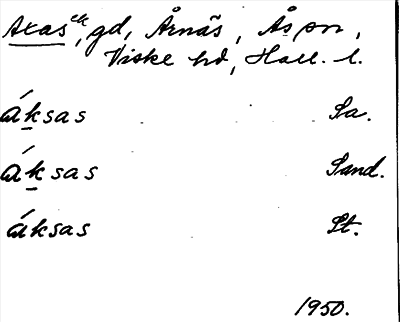 Axas ek, gd, Årnäs, Ås sn,
Viske hd, Hall. l.
áksas Sa.
áksas Sand.
áksas St.
1950.